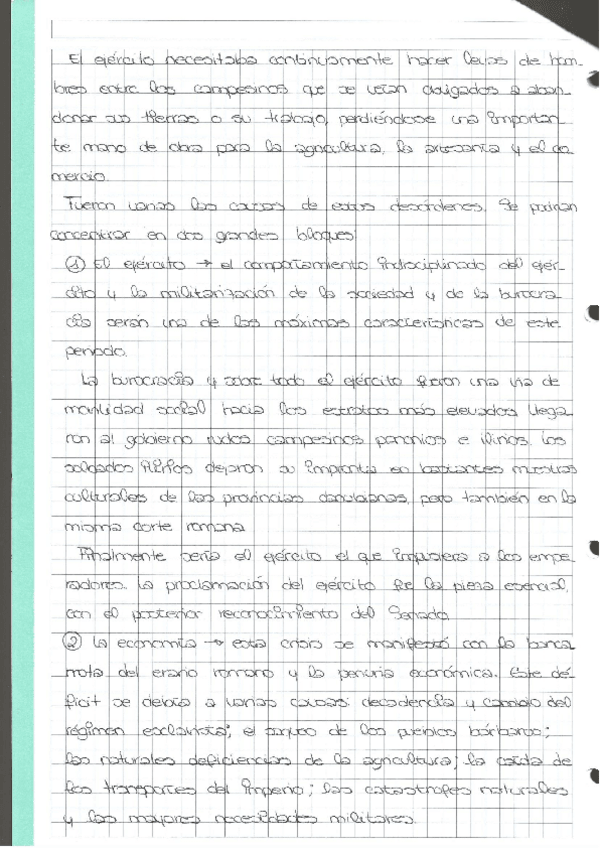 El ejército necesitaba continuamente hacer levas de hom-
bres entre los campesinos que se veían obligados a aban-
donar sus tierras o su trabajo, perdiéndose una importan
te mano de obra para la agricultura, la artesanía y el co
mercio.
Fueron varias las causas de estos desórdenes. Se podrían
concentrar en dos grandes bloques:
① El ejército → el comportamiento indisciplinado del ejér-
cito y la militarización de la sociedad y de la burocra
cia serán una de las máximas características de este
periodo.
La burocracia y sobre todo el ejército fueron una vía de
movilidad social hacia los estratos más elevados. Llega
ron al gobierno rudos campesinos panonios e ilirios. Los
soldados ilirios dejaron su impronta en bastantes muestras
culturales de las provincias danubianas, pero también en la
misma corte romana.
Finalmente sería el ejército el que impusiera a los empe
radores. La proclamación del ejército fue la pieza esencial,
con el posterior reconocimiento del Senado.
② La economía → esta crisis se manifestó con la banca
rrota del erario romano y la penuria económica. Este dé
ficit se debía a varias causas: decadencia y cambio del
régimen esclavista; el saqueo de los pueblos bárbaros;
las naturales deficiencias de la agricultura; la caída de
los transportes del Imperio; las catástrofes naturales
y las mayores necesidades militares.